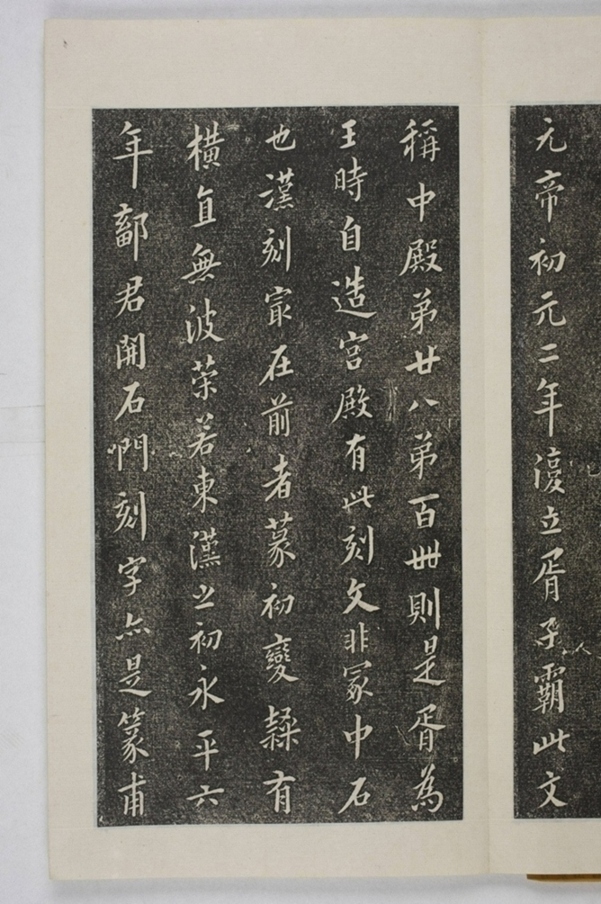 元帝初元二年復立胥子霸此文
稱中殿弟廿八弟百卌則是胥為
王時自造宮殿有此刻文非冢中石
也漢刻冣在前者篆初變隸有
橫直無波策若東漢之初永平六
年鄐君開石門刻字亦是篆甫